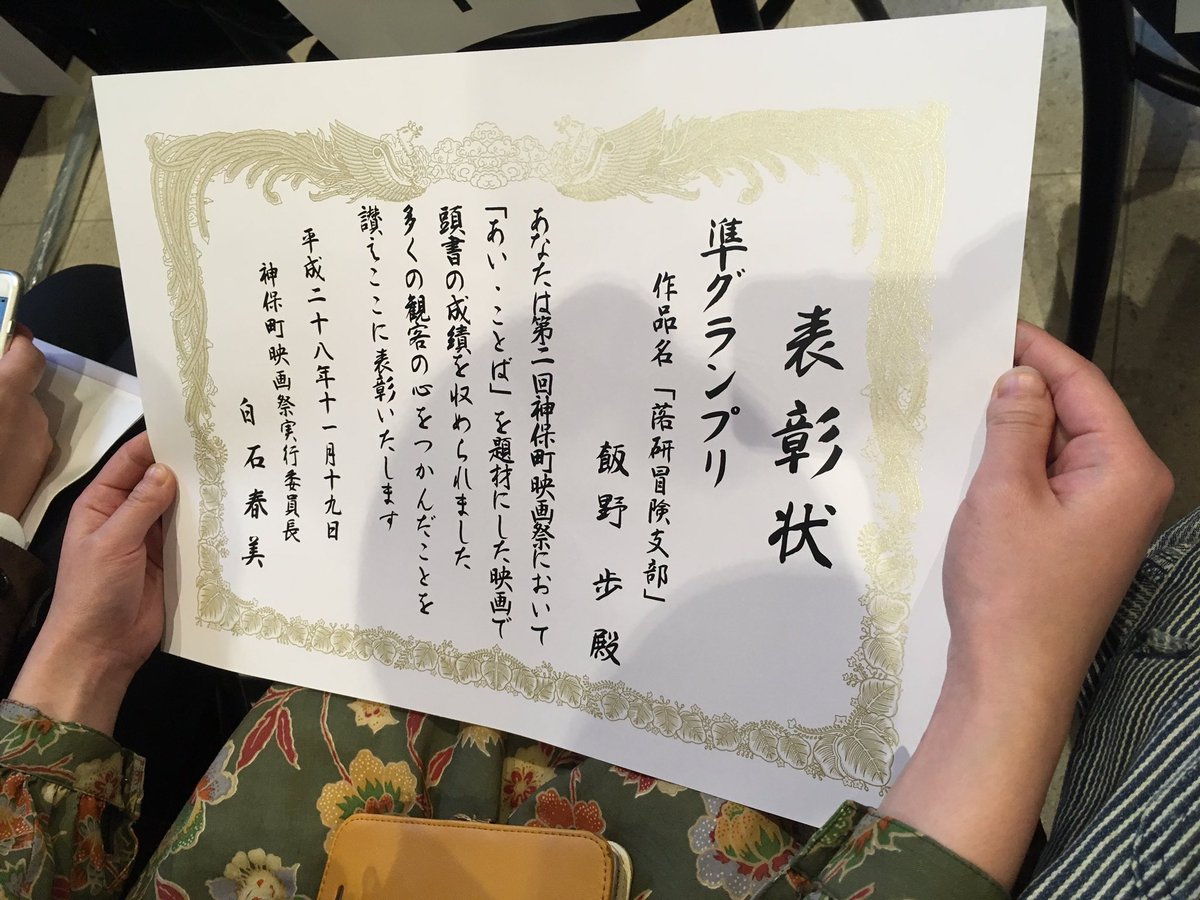 表彰状
準グランプリ
作品名「落研冒険支部」
飯野歩殿
あなたは第二回神保町映画祭において
「あい・ことば」を題材にした映画で
頭書の成績を収められました
多くの観客の心をつかんだことを
讃えここに表彰いたします
平成二十八年十一月十九日
神保町映画祭実行委員長
白石春美